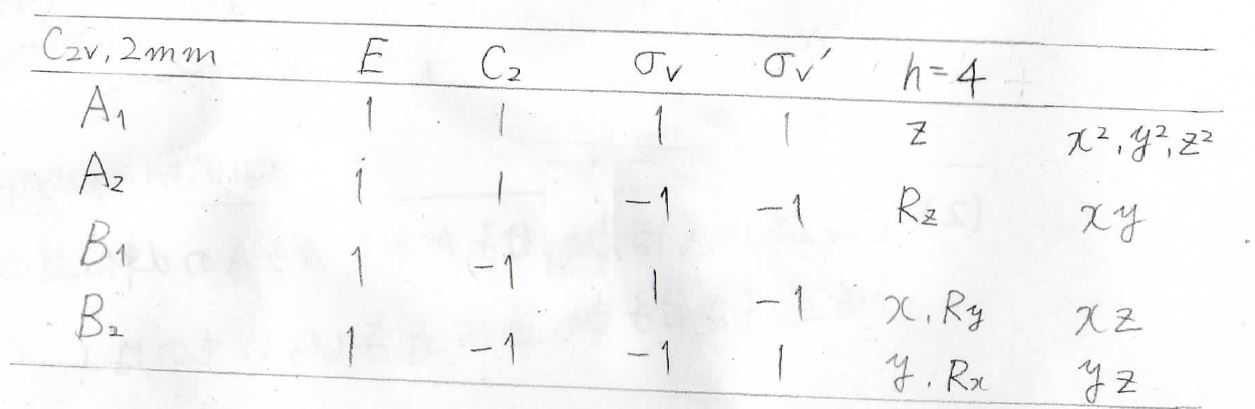 C₂ᵥ, 2mm E C₂ σᵥ σᵥ′ h=4
A₁ 1 1 1 1 z x², y², z²
A₂ 1 1 -1 -1 R_z xy
B₁ 1 -1 1 -1 x, R_y xz
B₂ 1 -1 -1 1 y, Rₓ yz